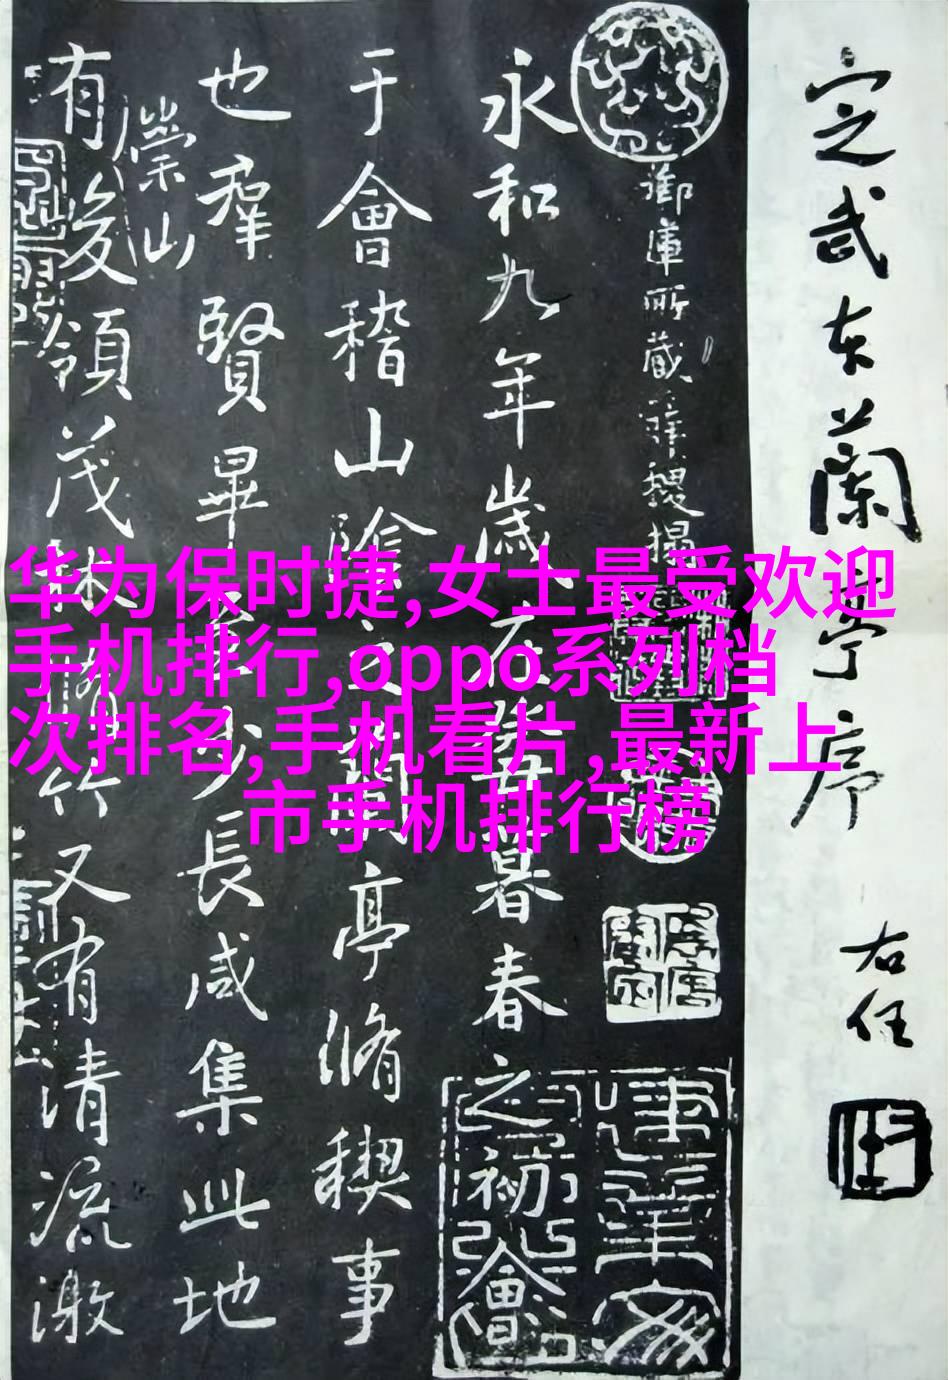 定武本蘭亭序
右任
御庫所藏
永和九年歲在癸丑暮春之初會
于會稽山陰之蘭亭脩稧事
也羣賢畢至少長咸集此地
有峻領茂林脩竹又有清流激
崇山
华为保时捷,女士最受欢迎
手机排行,oppo系列档
次排名,手机看片,最新上
市手机排行榜